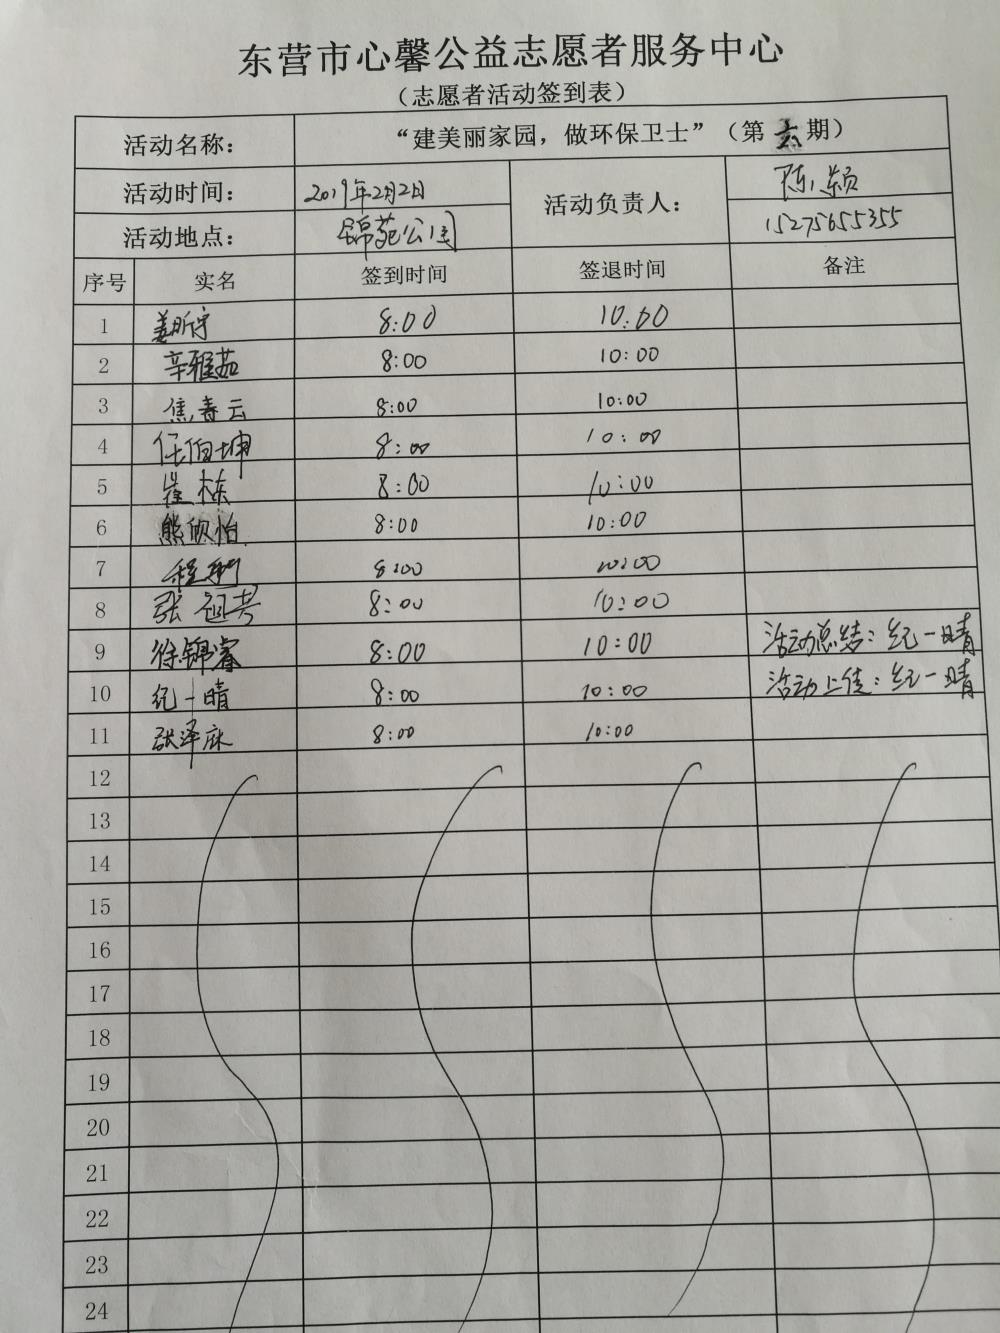 东营市心馨公益志愿者服务中心
（志愿者活动签到表）
活动名称： “建美丽家园，做环保卫士”（第六期）
活动时间： 2019年2月2日 活动负责人： 陈颖
活动地点： 锦苑公园 15275655355
序号 实名 签到时间 签退时间 备注
1 姜昕宇 8:00 10:00
2 辛雅茹 8:00 10:00
3 焦春云 8:00 10:00
4 任伯坤 8:00 10:00
5 崔栋 8:00 10:00
6 熊欣怡 8:00 10:00
7 8:00 10:00
8 张 8:00 10:00
9 徐锦睿 8:00 10:00 活动总结：纪一晴
10 纪一晴 8:00 10:00 活动上传：纪一晴
11 张泽麻 8:00 10:00
12
13
14
15
16
17
18
19
20
21
22
23
24